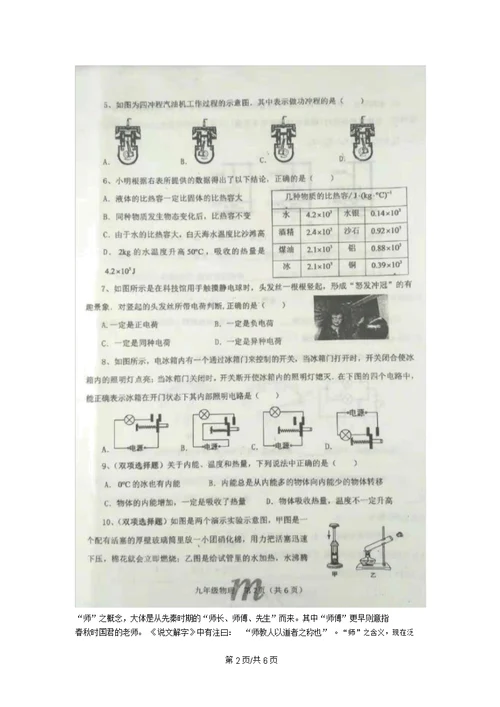 5、如图为四冲程汽油机工作过程的示意图，其中表示做功冲程的是（ ）
A. B. C. D.
6、小明根据右表所提供的数据得出了以下结论，正确的是（ ）
A、液体的比热容一定比固体的比热容大
B、同种物质发生物态变化后，比热容不变
C、由于水的比热容大，白天海水温度比沙滩高
D、2kg的水温度升高50℃，吸收的热量是
4.2×10⁵J
几种物质的比热容/J·(kg·℃)⁻¹
水 4.2×10³ 水银 0.14×10³
酒精 2.4×10³ 沙石 0.92×10³
煤油 2.1×10³ 铝 0.88×10³
冰 2.1×10³ 铜 0.39×10³
7、如图所示是在科技馆用手触摸静电球时，头发丝一根根竖起，形成“怒发冲冠”的有
趣景象．对竖起的头发丝所带电荷判断，正确的是（ ）
A.一定是正电荷 B．一定是负电荷
C．一定是同种电荷 D．一定是异种电荷
8、如图所示，电冰箱内有一个通过冰箱门来控制的开关，当冰箱门打开时，开关闭合使冰
箱内的照明灯点亮；当冰箱门关闭时，开关断开使冰箱内的照明灯熄灭．在下图的四个电路中，
能正确表示冰箱在开门状态下其内部照明电路是（ ）
A. 电源 B. 电源 C. 电源 D. 电源
9、（双项选择题）关于内能、温度和热量，下列说法中正确的是（ ）
A．0℃的冰也有内能 B．内能总是从内能多的物体向内能少的物体转移
C．物体的内能增加，一定是吸收了热量 D．物体吸收热量，温度不一定升高
10、（双项选择题）如图是两个演示实验示意图，甲图是一
个配有活塞的厚壁玻璃筒里放一小团硝化棉，用力把活塞迅速
下压，棉花就会立即燃烧；乙图是给试管里的水加热，水沸腾
甲 乙
九年级物理 第2页（共6页）
m
“师”之概念，大体是从先秦时期的“师长、师傅、先生”而来。其中“师傅”更早则意指
春秋时国君的老师。《说文解字》中有注曰：“师教人以道者之称也”。“师”之含义，现在泛
第2页/共6页